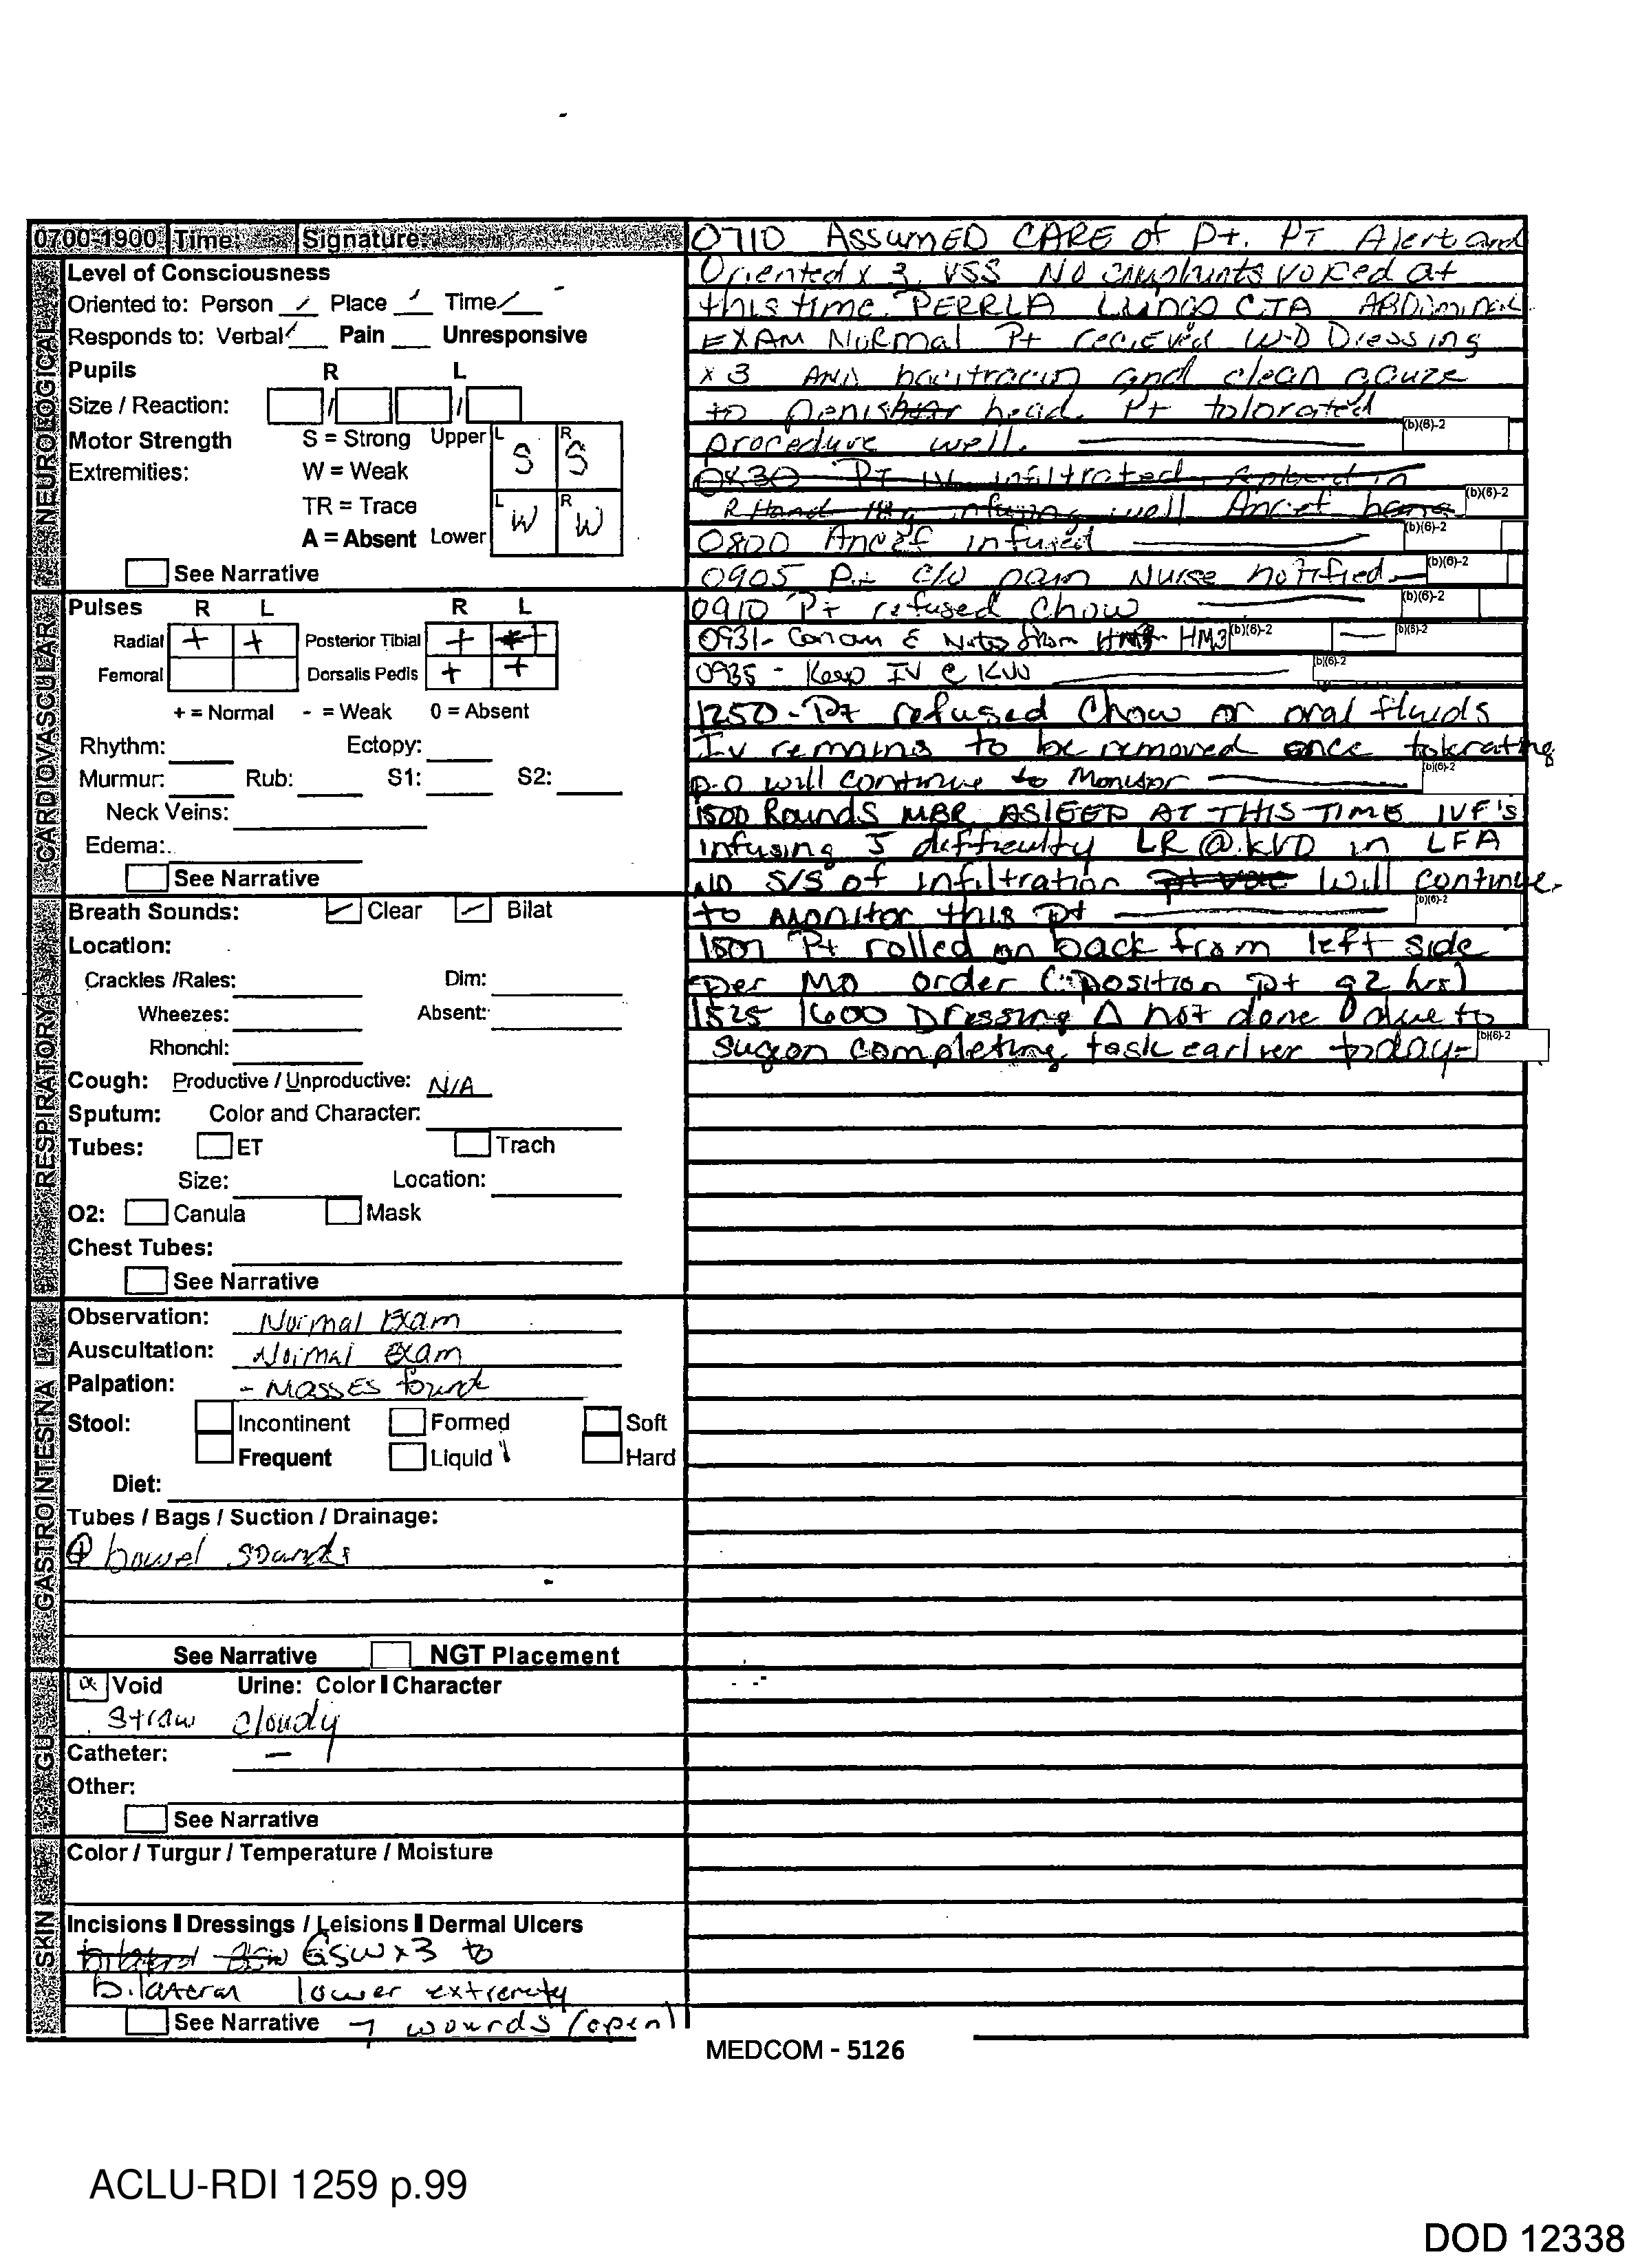 0700-1900 Time: Signature:
NEUROLOGICAL
Level of Consciousness
Oriented to: Person Place Time
Responds to: Verbal Pain Unresponsive
Pupils R L
Size / Reaction: / /
Motor Strength S = Strong Upper L S R S
Extremities: W = Weak
TR = Trace
A = Absent Lower L W R W
See Narrative
CARDIOVASCULAR
Pulses R L R L
Radial + + Posterior Tibial + +
Femoral Dorsalis Pedis + +
+ = Normal - = Weak 0 = Absent
Rhythm: Ectopy:
Murmur: Rub: S1: S2:
Neck Veins:
Edema:
See Narrative
RESPIRATORY
Breath Sounds: Clear Bilat
Location:
Crackles /Rales: Dim:
Wheezes: Absent:
Rhonchi:
Cough: Productive / Unproductive: N/A
Sputum: Color and Character:
Tubes: ET Trach
Size: Location:
O2: Canula Mask
Chest Tubes:
See Narrative
GASTROINTESINAL
Observation: Normal Exam
Auscultation: Normal Exam
Palpation: - Masses found
Stool: Incontinent Formed Soft
Frequent Liquid Hard
Diet:
Tubes / Bags / Suction / Drainage:
⊕ bowel sounds
See Narrative NGT Placement
GU
Void Urine: Color Character
Straw cloudy
Catheter: —
Other:
See Narrative
SKIN
Color / Turgur / Temperature / Moisture
Incisions Dressings / Leisions Dermal Ulcers
bilateral GSW GSW x3 to
bilateral lower extremity
See Narrative 7 wounds (open)
0710 Assumed CARE of Pt. PT Alert and
Oriented x 3, VSS No complaints voiced at
this time. PERRLA LUNGS CTA ABDominal
EXAM Normal Pt recieved W-D Dressing
x 3 And bacitracin and clean gauze
to penis head. Pt tolorated
procedure well. (b)(6)-2
0830 PT IV infiltrated, replaced in
R Hand infusing well Ancef (b)(6)-2
0820 Ancef infused (b)(6)-2
0905 Pt c/o pain Nurse notified (b)(6)-2
0910 Pt refused chow (b)(6)-2
0931- Concur c Notes from HM3 (b)(6)-2 (b)(6)-2
0935 - Keep IV @ KVO (b)(6)-2
1250 - Pt refused chow or oral fluids
Iv remains to be removed once tolerating
p.o will continue to Monitor (b)(6)-2
1500 Rounds MBR ASLEEP AT THIS TIME IVF's
infusing s difficulty LR @ KVO in LFA
NO S/S of infiltration Will continue
to monitor this pt (b)(6)-2
1507 Pt rolled on back from left side
per MD order (position pt q2 hrs)
1525 1600 Dressing Δ not done due to
sugeon completing task earlier today- (b)(6)-2
MEDCOM - 5126
ACLU-RDI 1259 p.99
DOD 12338